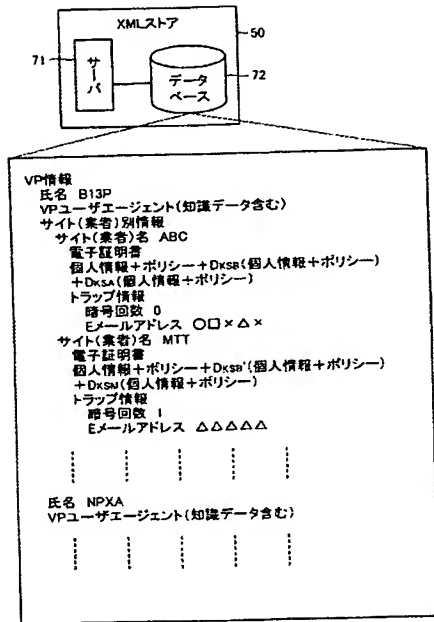 XMLストア
50
71
サーバ
データベース
72
VP情報
氏名 B13P
VPユーザエージェント(知識データ含む)
サイト(業者)別情報
サイト(業者)名 ABC
電子証明書
個人情報+ポリシー+DKSB(個人情報+ポリシー)
+DKSA(個人情報+ポリシー)
トラップ情報
暗号回数 0
Eメールアドレス ○□×△×
サイト(業者)名 MTT
電子証明書
個人情報+ポリシー+DKSB'(個人情報+ポリシー)
+DKSM(個人情報+ポリシー)
トラップ情報
暗号回数 1
Eメールアドレス △△△△△
氏名 NPXA
VPユーザエージェント(知識データ含む)